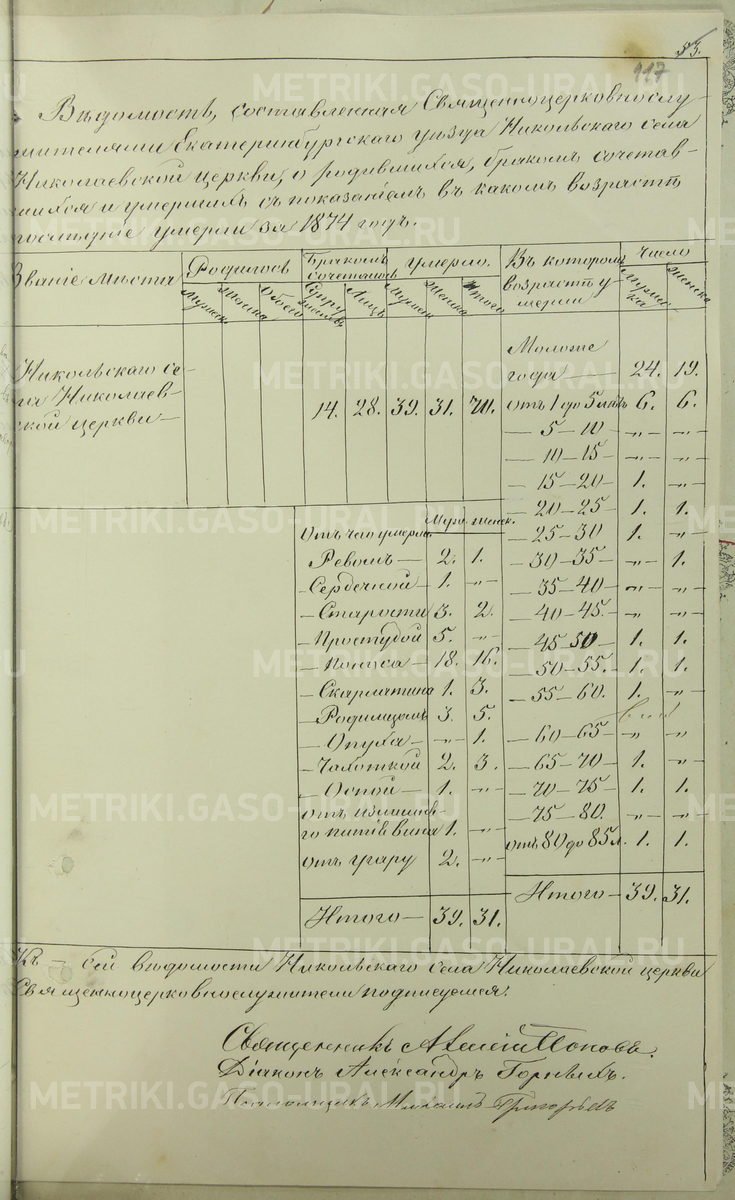 53.
117
Вѣдомость, составленная Священноцерковнослу-
жителями Екатеринбургскаго уѣзда Никольскаго села
Николаевской церкви, о родившихся, бракомъ сочетав-
шихся и умершихъ съ показаніемъ въ какомъ возрастѣ
послѣдніе умерли за 1874 годъ.
Званіе мѣста Родилось Бракомъ сочеталось Умерло. Въ которомъ возрастѣ умерли Число
Мужеск Женска Обоего Супружествъ Лицъ Мужеск Женска Итого Мужеска Женска
Никольскаго се-
ла Николаев-
ской церкви — 14. 28. 39. 31. 70.
Моложе
года — 24. 19.
отъ 1 до 5 лѣтъ 6. 6.
— 5 — 10 — „ — „ —
— 10 — 15 — „ — „ —
— 15 — 20 — 1. „ —
— 20 — 25 — 1. 1.
— 25 — 30 1. „ —
— 30 — 35 — „ — 1.
— 35 — 40 — „ — „ —
— 40 — 45. — „ — „
— 45 50 — 1. 1.
— 50 — 55. — 1. 1.
— 55 — 60. 1. „ —
— 60 — 65 — „ — „
— 65 — 70 — 1. „ —
— 70 — 75 — 1. 1.
— 75 — 80. „ — „ —
отъ 80 до 85 л. 1. 1.
Итого — 39. 31.
Отъ чего умерли Муж. Женск.
Ревомъ — 2. 1.
— Сердечной — 1. „ —
— Старости 3. 2.
— Простудой 5. „ —
— Поноса — 18. 16.
— Скарлатина 1. 3.
— Родимцемъ 3. 5.
— Опуха — „ — 1.
— Чахоткой 2. 3.
— Оспой — 1. „ —
отъ излишня-
го питія вина 1. „ —
отъ угару 2. „ —
Итого — 39. 31.
Къ — сей вѣдомости Никольскаго села Николаевской церкви
Священноцерковнослужители подписуемся:
Священникъ Алексій Поповъ.
Діаконъ Александръ Горныхъ.
Псаломщикъ Михаилъ Григорьевъ
METRIKI.GASO-URAL.RU